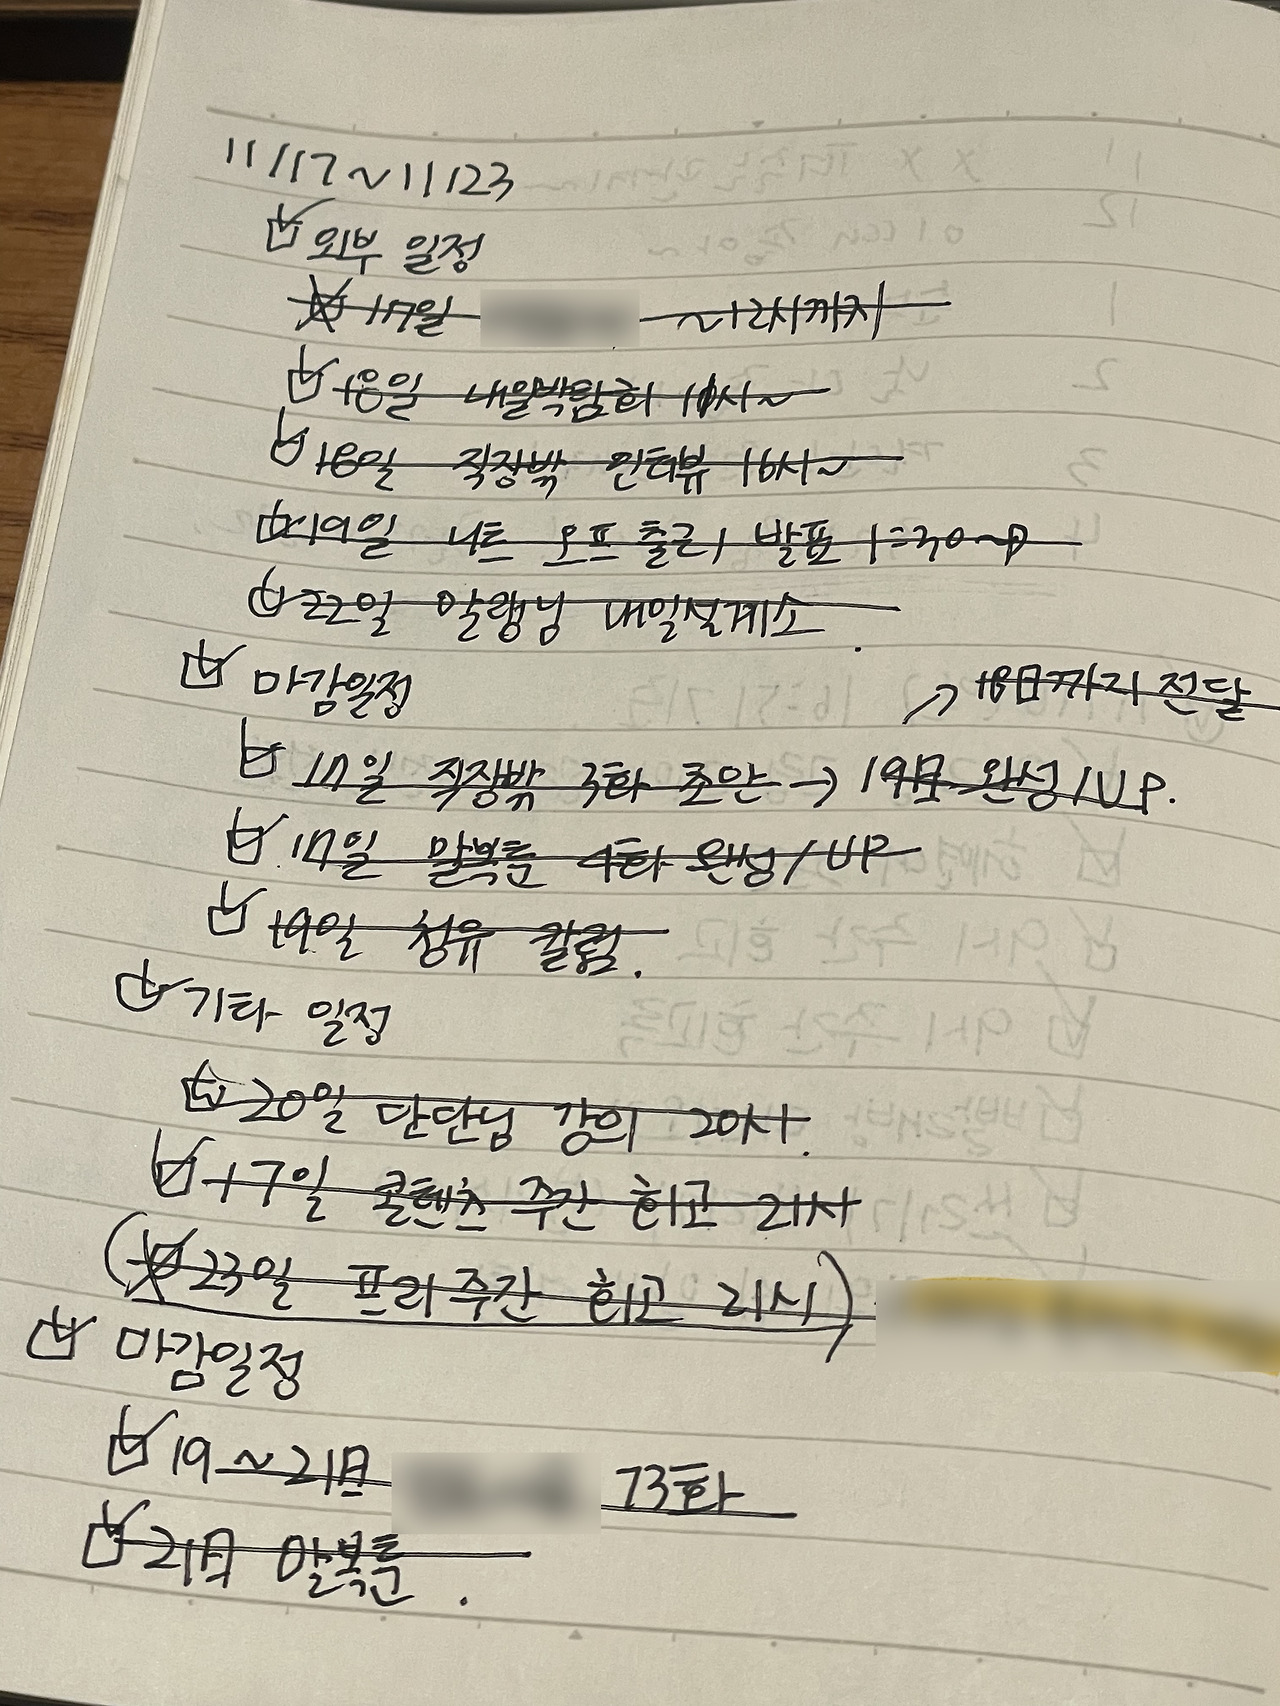 11/17~11/23
외부 일정
17일 ~12시까지
18일 내일박람회
18일 직장밖 인터뷰 16시~
19일 너트 오프 출근, 발표 1:30~
22일 알랭님 내일설계소
마감일정
18日까지 전달
17일 직장밖 3화 초안 → 19日 완성/UP.
17일 말복툰 4화 완성/UP
19일 청유 칼럼.
기타 일정
20일 단단님 강의 20시.
17일 콘텐츠 주간 회고 21시
(23일 프리 주간 회고 21시)
마감일정
19~21日 73화
21日 말복툰.